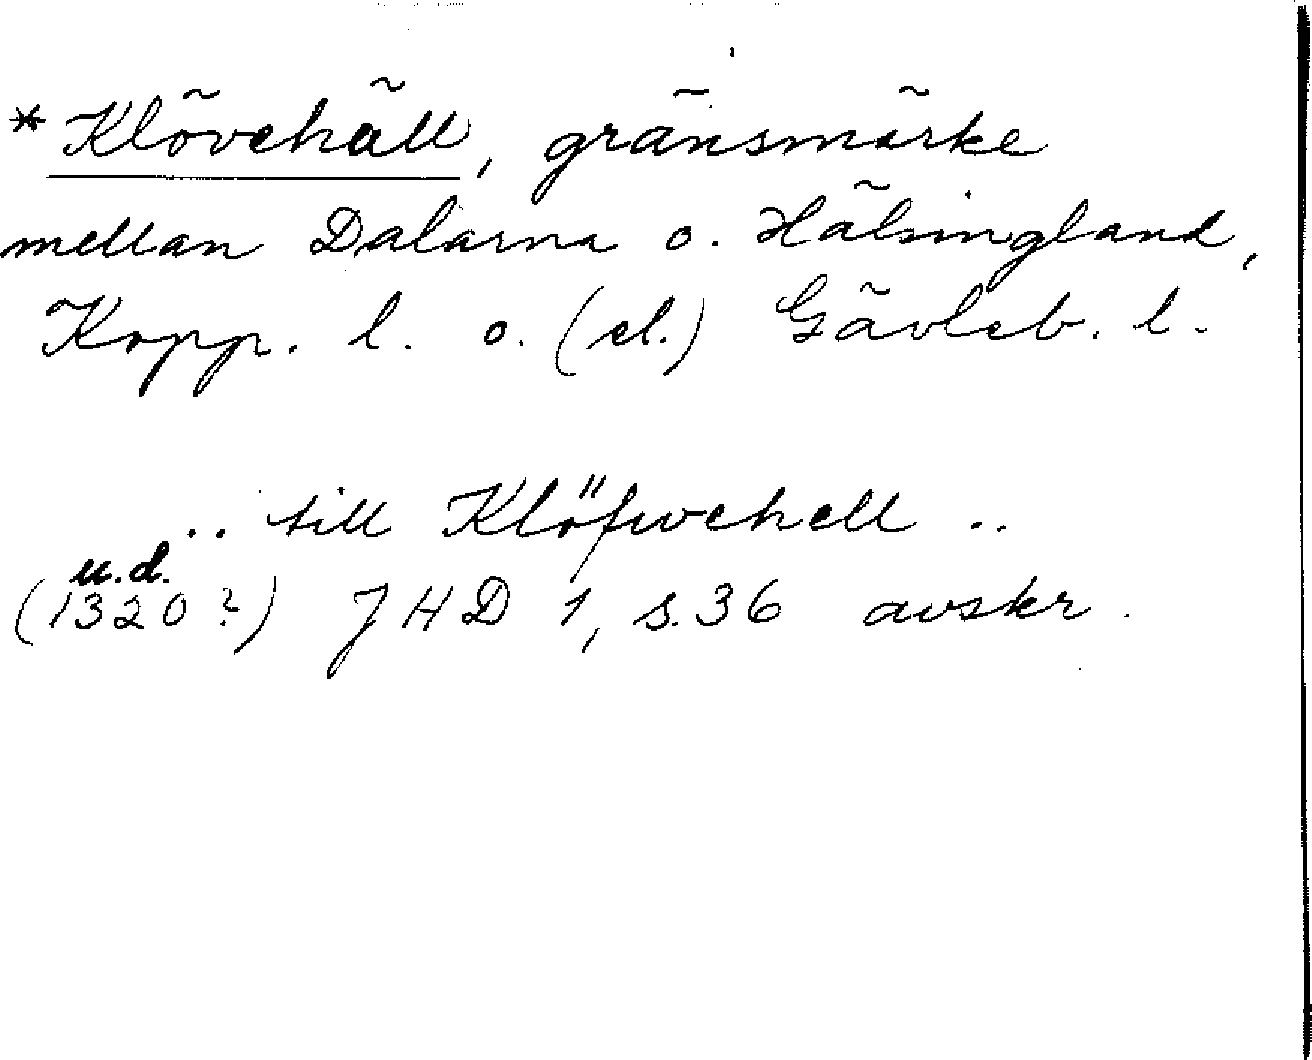 *Klövehäll, gränsmärke
mellan Dalarna o. Hälsingland,
Kopp. l. o. (el.) Gävleb. l.
.. till Klöfwehell ..
u.d.
(1320?) JHD 1, s.36 avskr.